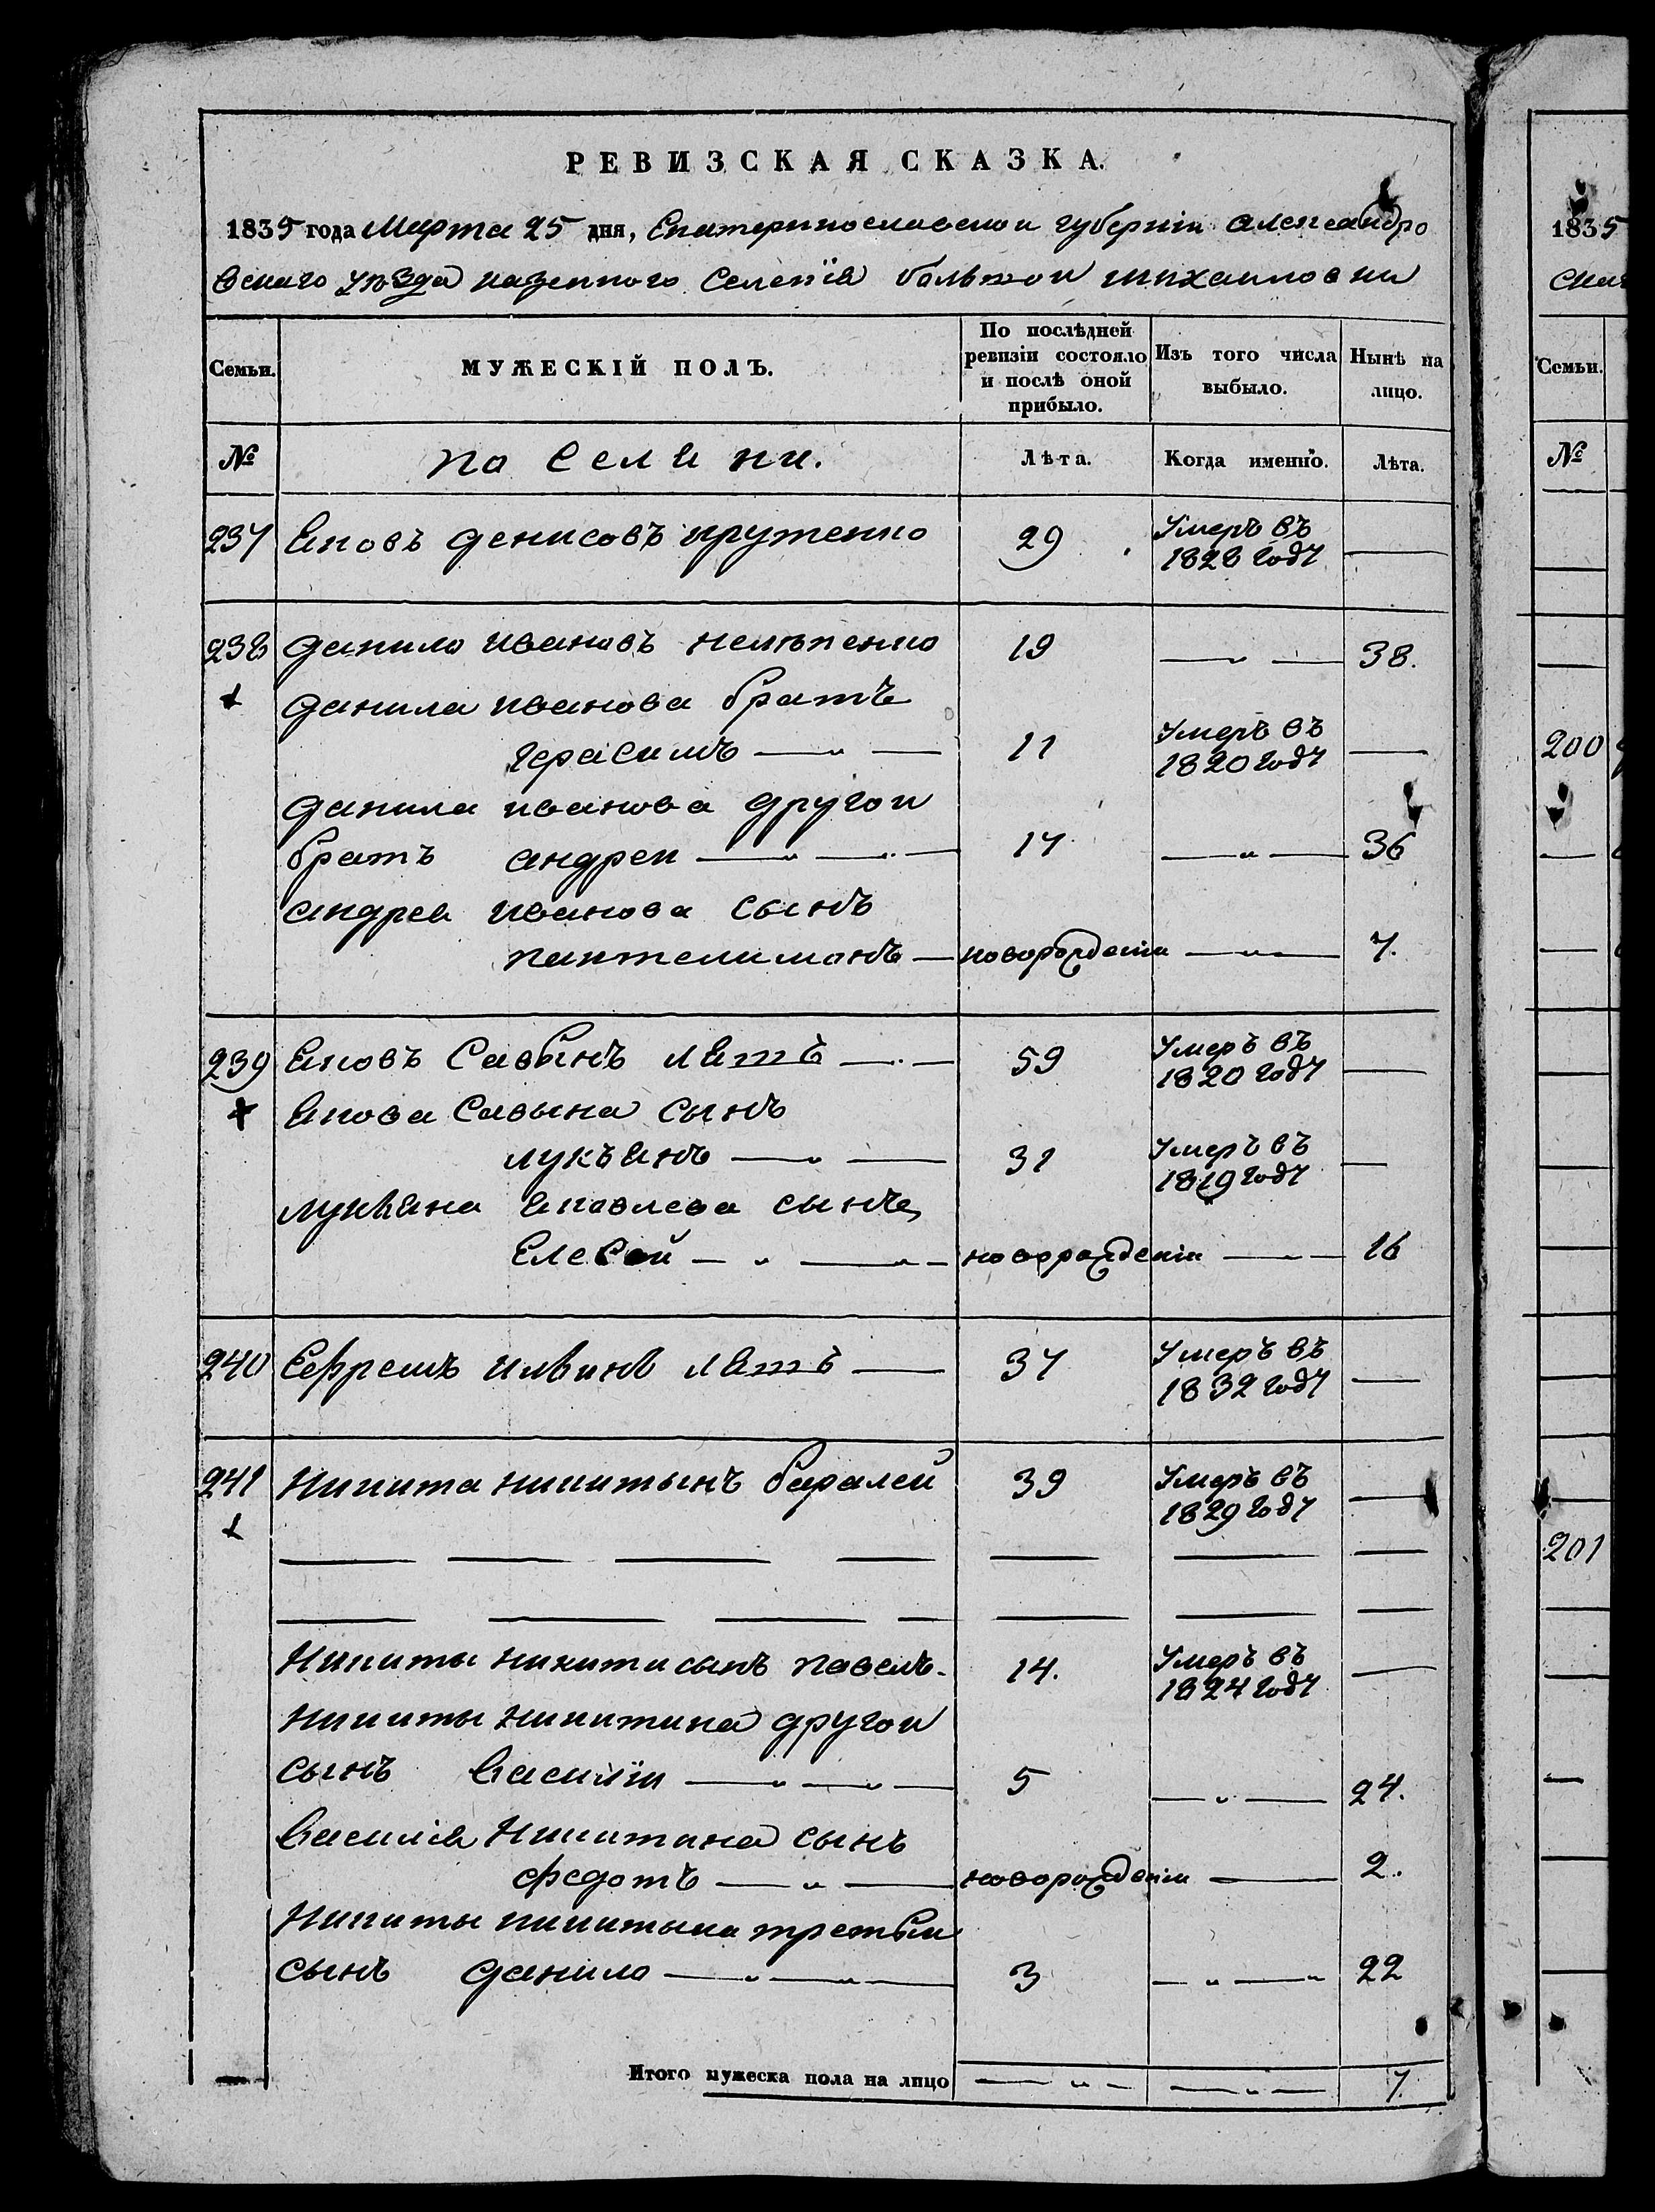 РЕВИЗСКАЯ СКАЗКА.
1835 года Марта 25 дня, Екатеринославской губерніи александро
вскаго уѣзда казенного Селенія большой михаиловки
Семьи.
МУЖЕСКІЙ ПОЛЪ.
По послѣдней ревизіи состояло и послѣ оной прибыло.
Изъ того числа выбыло.
Нынѣ на лицо.
№
поселяни.
Лѣта.
Когда именно.
Лѣта.
237 Яковъ денисовъ 29 Умеръ въ
1828 году
238 данило ивановъ 19 38.
данила иванова братъ
герасимъ 11 Умеръ въ
1820 году
данила иванова другои
братъ андреи 17 36
андрея иванова сынъ
пантелимонъ новорожденіи 7.
239 Яковъ Савынъ лятъ 59 Умеръ въ
1820 году
Якова Савына сынъ
лукъянъ 31 Умеръ въ
1819 году
лукъяна яковлева сынъ
Елесей новорожденіи 16
240 Ефремъ ильинъ лятъ 37 Умеръ въ
1832 году
241 Никита никитынъ баралей 39 Умеръ въ
1829 году
Никиты никити сынъ павелъ 14. Умеръ въ
1824 году
Никиты никитина другои
сынъ Василіи 5 24.
Василія Никитина сынъ
федотъ новорожденіи 2.
Никиты никитына третьи
сынъ данило 3 22
Итого мужеска пола на лицо 7.
1835
Семьи.
№
200
201